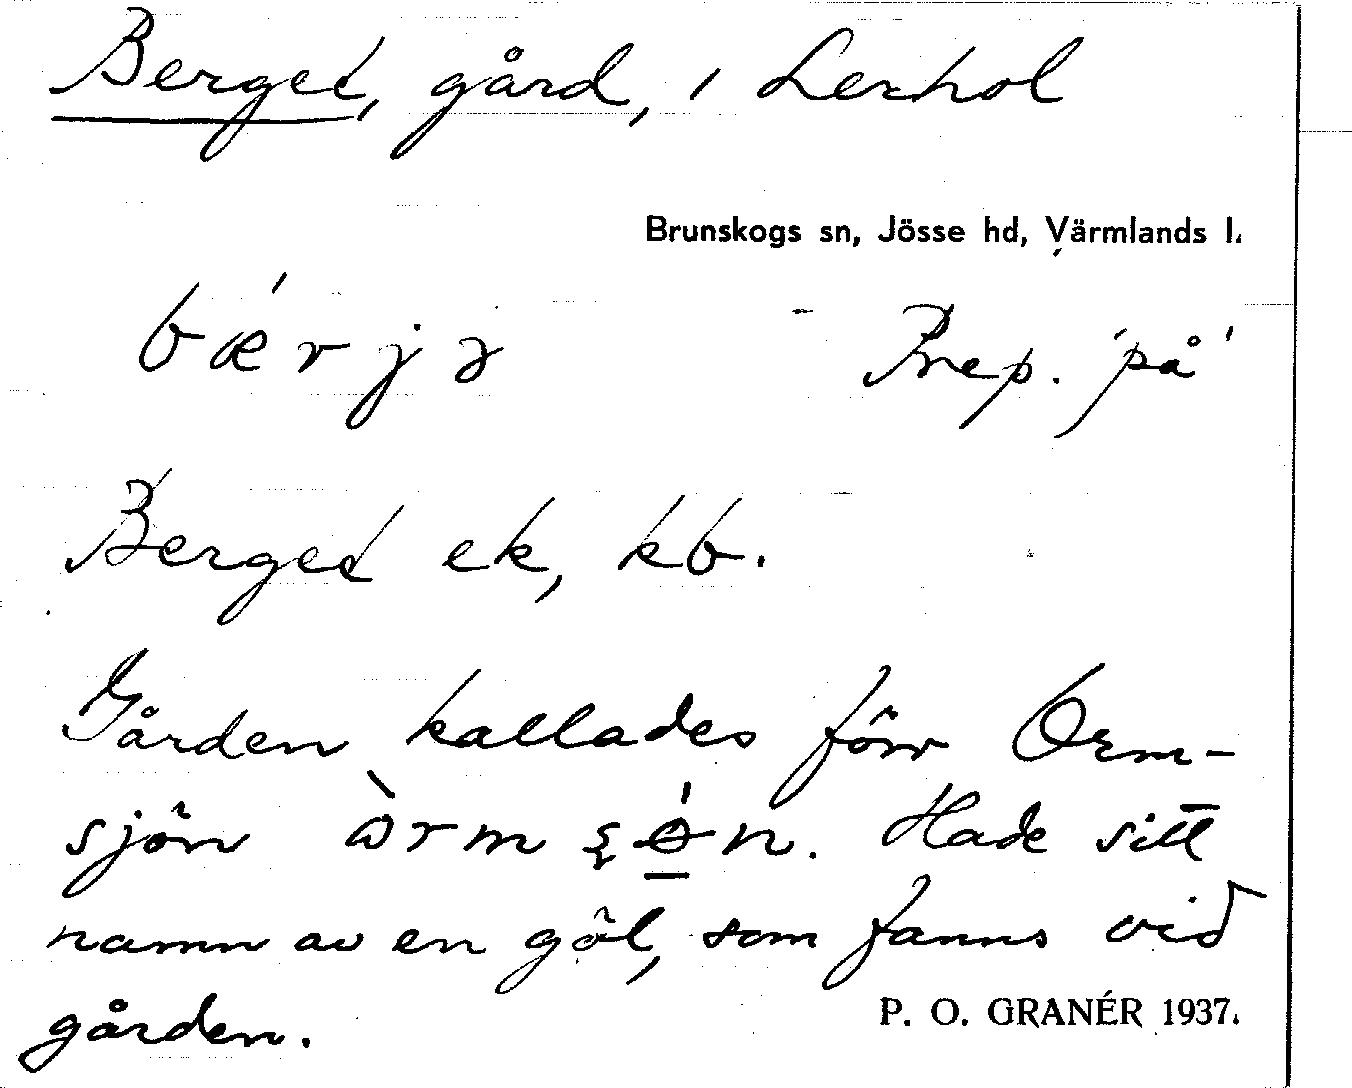 Berget, gård, i Lerhol
Brunskogs sn, Jösse hd, Värmlands l.
bǽrjə Prep. 'på'
Berget ek, kb.
Gården kallades förr Orm-
sjön ɷ̀rmʂǿn. Hade sitt
namn av en göl, som fanns vid
gården.
P. O. GRANÉR 1937.